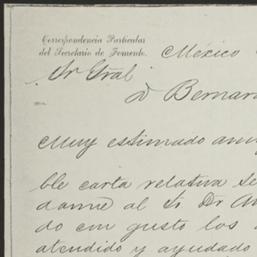 Correspondencia Particular
del Secretario de Fomento.
México
Sr Gral
D Bernar
Muy estimado ami
ble carta relativa se
darme al Sr Dr
do con gusto los
atendido y ayudado